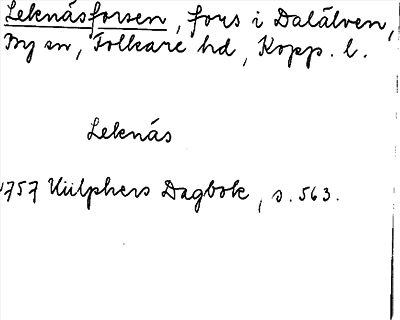 Leknäsforsen, fors i Dalälven,
By sn, Folkare hd, Kopp. l.
Leknäs
1757 Hülphers Dagbok, s. 563.